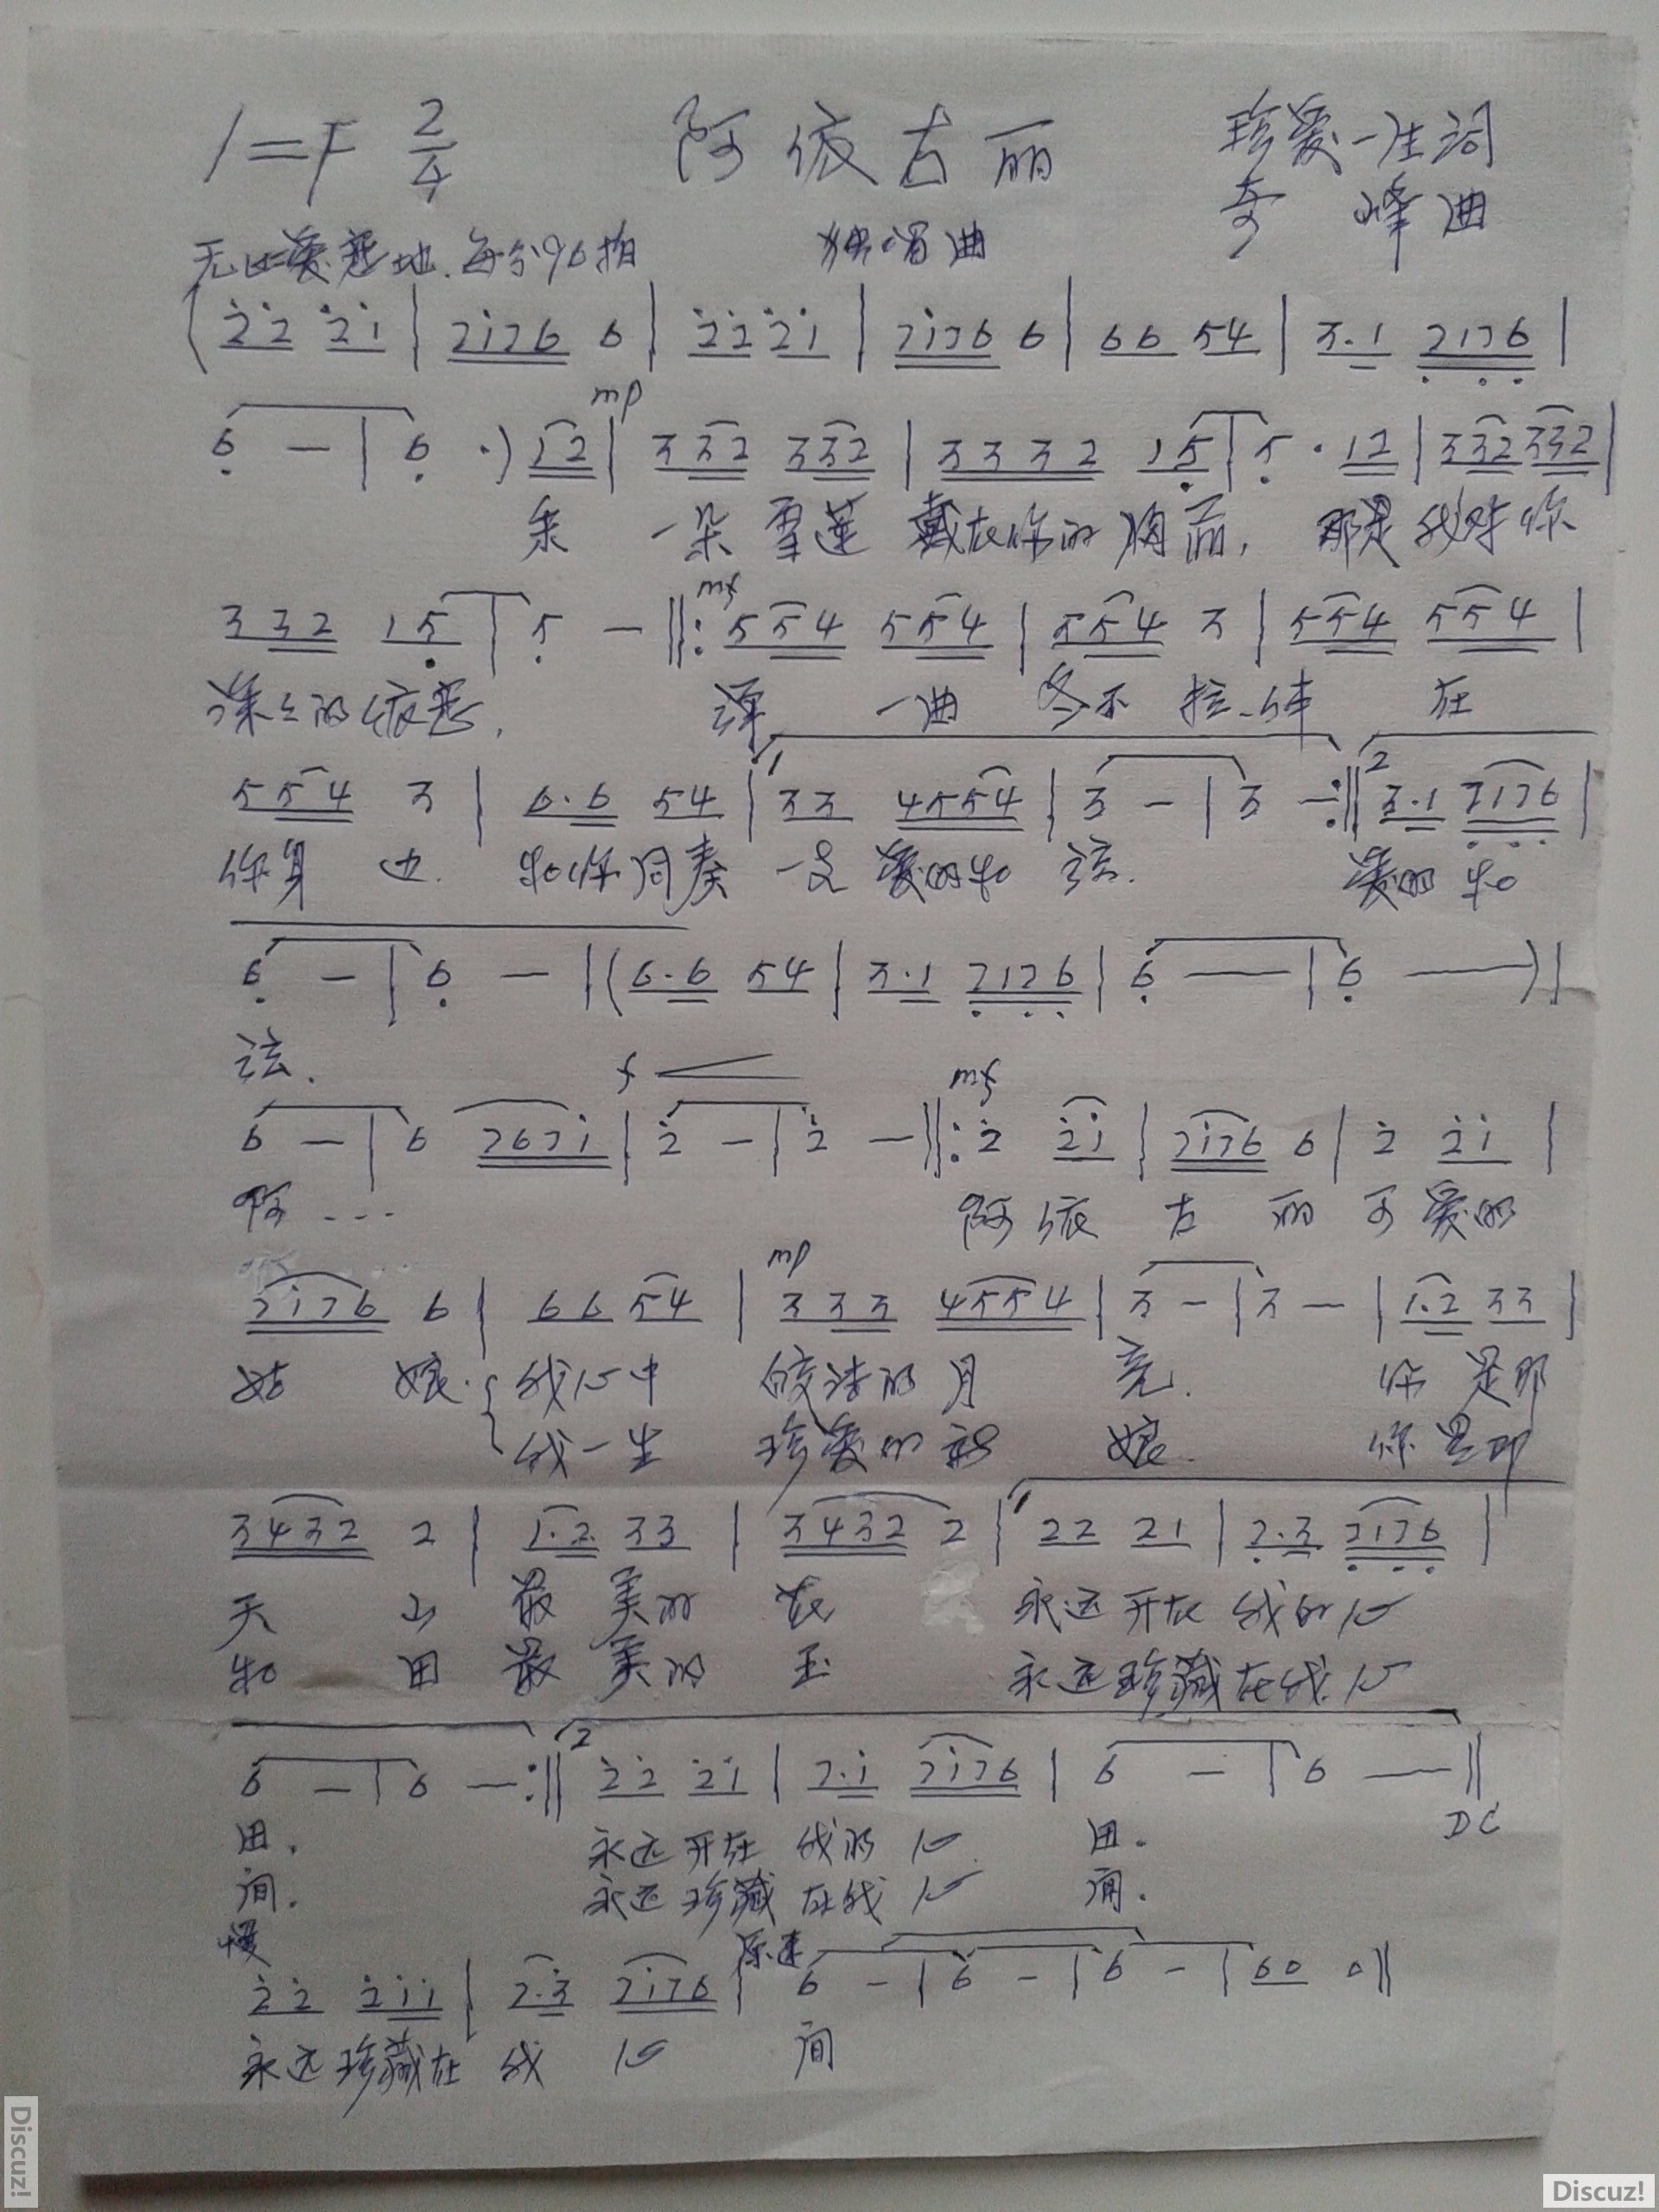 1=F 2/4 阿依古丽 珍爱一生词
奇峰曲
无比爱恋地.每分96拍 独唱曲
(2̇2̇ 2̇1̇ | 71̇76 6 | 2̇2̇ 2̇1̇ | 71̇76 6 | 66 54 | 3·1 2176 |
mp
6 — | 6 ·) 12 | 3 32 3 32 | 3 3 3 2 1 5 | 5 · 12 | 3 32 3 32 |
采 一朵雪莲 戴在你的胸前, 那是我对你
mf
3 32 1 5 | 5 — ‖: 5 54 5 54 | 5 54 3 | 5 54 5 54 |
深深的依恋, 弹一曲 冬不拉 伴在
5 54 3 | 6·6 54 | 1 33 4554 | 3 — | 3 — :‖ 2 3·1 2176 |
你身边 和你同奏一支爱的和弦. 爱的和
6 — | 6 — | (6·6 54 | 3·1 2176 | 6 — | 6 — ) |
弦.
f < mf
6 — | 6 7671̇ | 2̇ — | 2̇ — ‖: 2̇ 2̇1̇ | 71̇76 6 | 2̇ 2̇1̇ |
啊... 阿依古丽可爱的
mp
71̇76 6 | 66 54 | 3 33 4554 | 3 — | 3 — | 1·2 33 |
姑娘.{我心中 皎洁的月亮. 你是那
我一生 珍爱的新娘. 你是那
3432 2 | 1·2 33 | 3432 2 | 1 22 21 | 7·3 2176 |
天山最美的花 永远开在我的心
和田最美的玉 永远珍藏在我心
6 — | 6 — :‖ 2 2̇2̇ 2̇1̇ | 7·1̇ 71̇76 | 6 — | 6 — ‖
DC
田. 永远开在我的心田.
间. 永远珍藏在我心间.
慢 原速
2̇2̇ 2̇1̇1̇ | 2̇·3̇ 71̇76 | 6 — | 6 — | 6 — | 60 0 ‖
永远珍藏在我心间
Discuz!
Discuz!